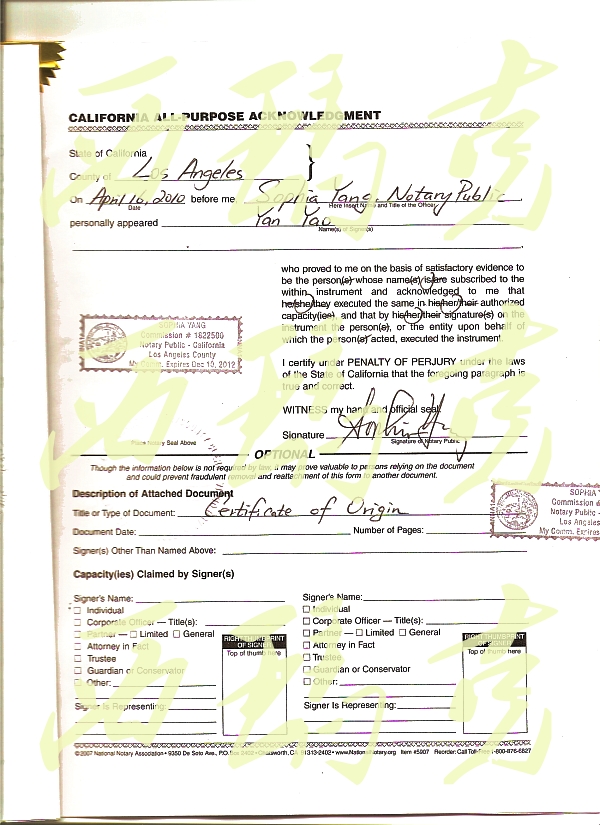 CALIFORNIA ALL-PURPOSE ACKNOWLEDGMENT
State of California
County of Los Angeles
On April 16, 2010 before me, Sophia Yang, Notary Public
Date Here Insert Name and Title of the Officer
personally appeared Yan Yao
Name(s) of Signer(s)
who proved to me on the basis of satisfactory evidence to
be the person(s) whose name(s) is/are subscribed to the
within instrument and acknowledged to me that
he/she/they executed the same in his/her/their authorized
capacity(ies), and that by his/her/their signature(s) on the
instrument the person(s), or the entity upon behalf of
which the person(s) acted, executed the instrument.
SOPHIA YANG
Commission # 1822500
Notary Public - California
Los Angeles County
My Comm. Expires Dec 10, 2012
I certify under PENALTY OF PERJURY under the laws
of the State of California that the foregoing paragraph is
true and correct.
WITNESS my hand and official seal.
Signature
Place Notary Seal Above
Signature of Notary Public
OPTIONAL
Though the information below is not required by law, it may prove valuable to persons relying on the document
and could prevent fraudulent removal and reattachment of this form to another document.
Description of Attached Document
Title or Type of Document: Certificate of Origin
Document Date: Number of Pages:
Signer(s) Other Than Named Above:
SOPHIA Y
Commission #
Notary Public -
Los Angeles
My Comm. Expires
Capacity(ies) Claimed by Signer(s)
Signer's Name:
Individual
Corporate Officer — Title(s):
Partner — Limited General
Attorney in Fact
Trustee
Guardian or Conservator
Other:
Signer Is Representing:
RIGHT THUMBPRINT
OF SIGNER
Top of thumb here
Signer's Name:
Individual
Corporate Officer — Title(s):
Partner — Limited General
Attorney in Fact
Trustee
Guardian or Conservator
Other:
Signer Is Representing:
RIGHT THUMBPRINT
OF SIGNER
Top of thumb here
©2007 National Notary Association • 9350 De Soto Ave., P.O. Box 2402 • Chatsworth, CA 91313-2402 • www.NationalNotary.org Item #5907 Reorder: Call Toll-Free 1-800-876-6827